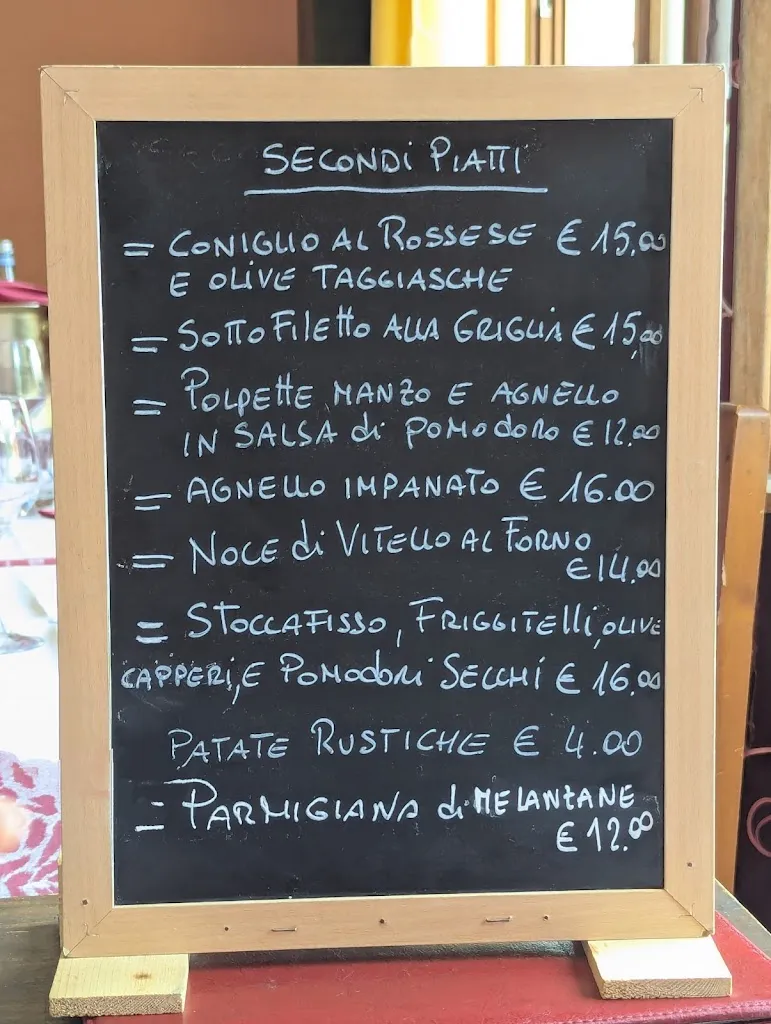 SECONDi PIATTI
= CONIGLIO AL ROSSESE € 15,00
E OLIVE TAGGIASCHE
= SOTTOFILETTO ALLA GRIGLIA € 15,00
= POLPETTE MANZO E AGNELLO
IN SALSA di POMODORO € 12.00
= AGNELLO IMPANATO € 16.00
= NOCE di VITELLO AL FORNO
€ 14.00
= STOCCAFISSO, FRIGGITELLI, OLIVE
CAPPERI, E POMODORI SECCHI € 16.00
PATATE RUSTICHE € 4.00
= PARMIGIANA di MELANZANE
€ 12.00